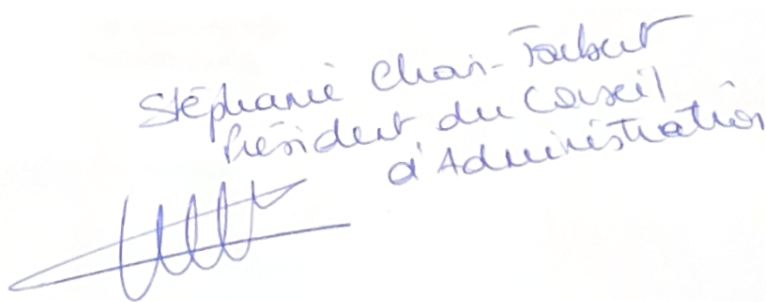 Stéphanie Chais-Foubert
Président du Conseil
d'Administration